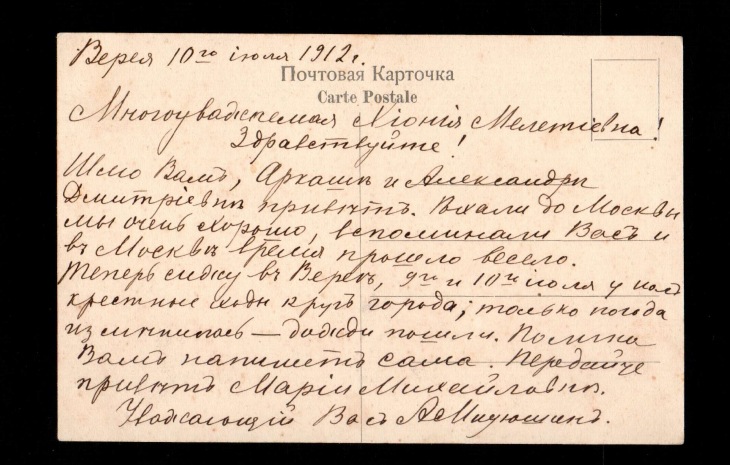 Верея 10го іюля 1912г.
Почтовая Карточка
Carte Postale
Многоуважаемая Хіонія Мелетіевна!
Здравствуйте!
Шлю Вамъ, Аркашѣ и Александрѣ
Дмитріевнѣ привѣтъ. Ѣхали до Москвы
мы очень хорошо, вспоминали Васъ и
въ Москвѣ время прошло весело.
Теперь сижу въ Вереѣ, 9го и 10го іюля у насъ
крестные ходы кругъ города; только погода
измѣнилась — дожди пошли.
Вамъ напишетъ сама. Передайте
привѣтъ Маріи Михайловнѣ.
Уважающій Васъ